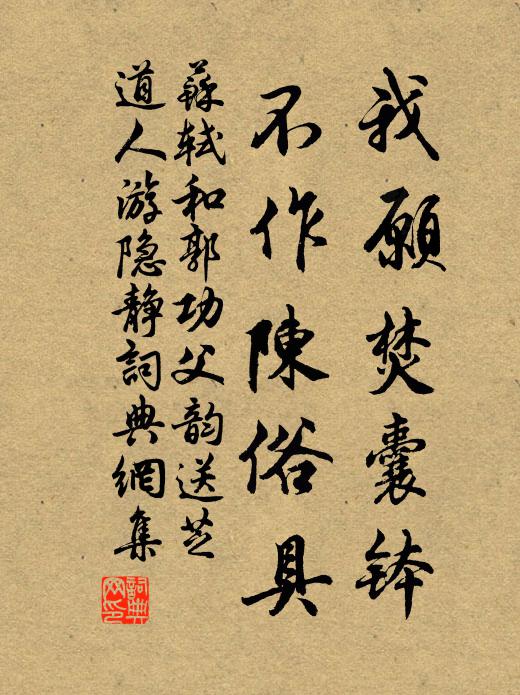 我願焚囊钵
不作陳俗具
蘇軾和郭功父韵送芝
道人游隐靜詞典網集
詞典
网印